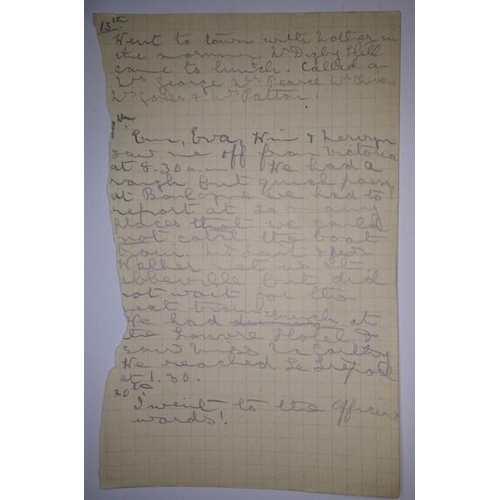 13th
Went to town with Mother in
the morning Mr Digby Hill
came to lunch. Called on
Mrs George Mrs Pearce Mrs
Mrs & Mrs Patton.
Ern, Eva, Win & Merwyn
saw me off from Victoria
at 8.30 a.m. We had a
rough but quick passage
at Boulogne we had to
report at so many
places that we could
not catch the boat
train. &
Walker met us at
Abbeville but did
not wait for the
next train.
We had lunch at
the Louvre Hotel &
saw Miss McCarthy
We reached Le Treport
at 1.30.
20th
I went to the Officers
wards!